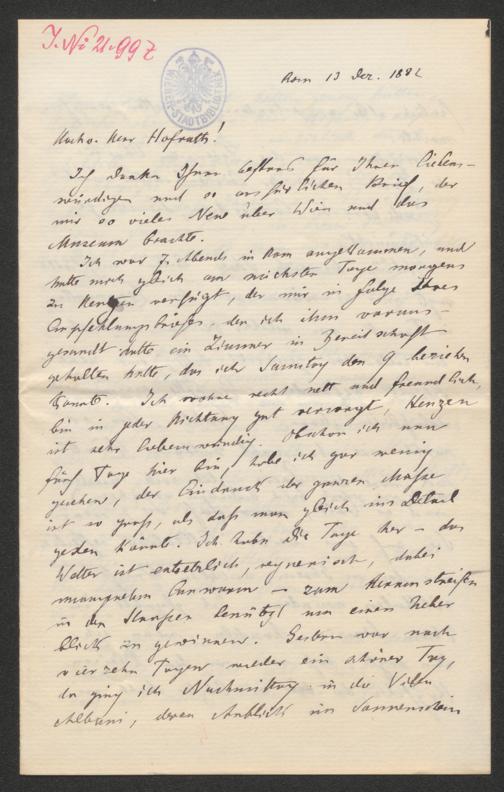 J. N. 21.997
WIENER STADTBIBLIOTHEK
Rom 13 Dez. 1882
Hochv. Herr Hofrath!
Ich danke Ihnen bestens für Ihren liebens-
würdigen und so ausführlichen Brief, der
mir so vieles Neue über Wien und das
Museum brachte.
Ich war 7. Abends in Rom angekommen, und
hatte mich gleich am nächsten Tage morgens
zu Henzen verfügt, der mir in folge Ihres
Empfehlungsbriefes, den ich ihm voraus-
gesandt hatte ein Zimmer in Bereitschaft
gehalten hatte, das ich Samstag den 9 beziehen
konnte. Ich wohne recht nett und freundlich,
bin in jeder Richtung gut versorgt, Henzen
ist sehr liebenswürdig. Obschon ich nun
fünf Tage hier bin, habe ich gar wenig
gesehen, der Eindruck der ganzen Masse
ist so groß, als daß man gleich ins Detail
gehen könnte. Ich habe die Tage her – das
Wetter ist entsetzlich, regnerisch, dabei
unangenehm warm – zum Herumstreifen
in den Strassen benützt um einen Ueber
blick zu gewinnen. Gestern war nach
vierzehn Tagen wieder ein schöner Tag,
da ging ich Nachmittag in die Villa
Albani, deren Anblick im Sonnenschein